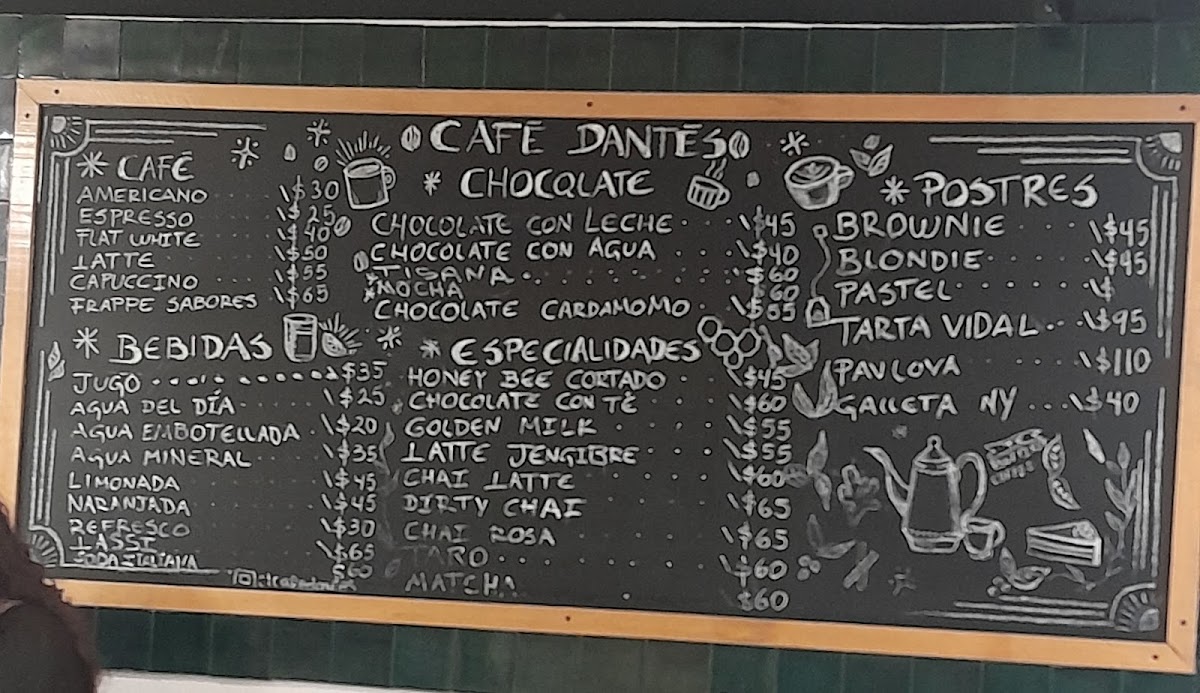 CAFÉ DANTÉS
* CAFÉ
AMERICANO \$30
ESPRESSO \$25
FLAT WHITE \$40
LATTE \$50
CAPUCCINO \$55
FRAPPE SABORES \$65
* BEBIDAS
JUGO \$35
AGUA DEL DÍA \$25
AGUA EMBOTELLADA \$20
AGUA MINERAL \$35
LIMONADA \$45
NARANJADA \$45
REFRESCO \$30
LASSI \$65
SODA ITALIANA \$60
* CHOCOLATE
CHOCOLATE CON LECHE \$45
CHOCOLATE CON AGUA \$40
TISANA \$60
MOCHA \$60
CHOCOLATE CARDAMOMO \$65
* ESPECIALIDADES
HONEY BEE CORTADO \$45
CHOCOLATE CON TÉ \$60
GOLDEN MILK \$55
LATTE JENGIBRE \$55
CHAI LATTE \$60
DIRTY CHAI \$65
CHAI ROSA \$65
TARO \$60
MATCHA \$60
* POSTRES
BROWNIE \$45
BLONDIE \$45
PASTEL \$
TARTA VIDAL \$95
PAVLOVA \$110
GALLETA NY \$40